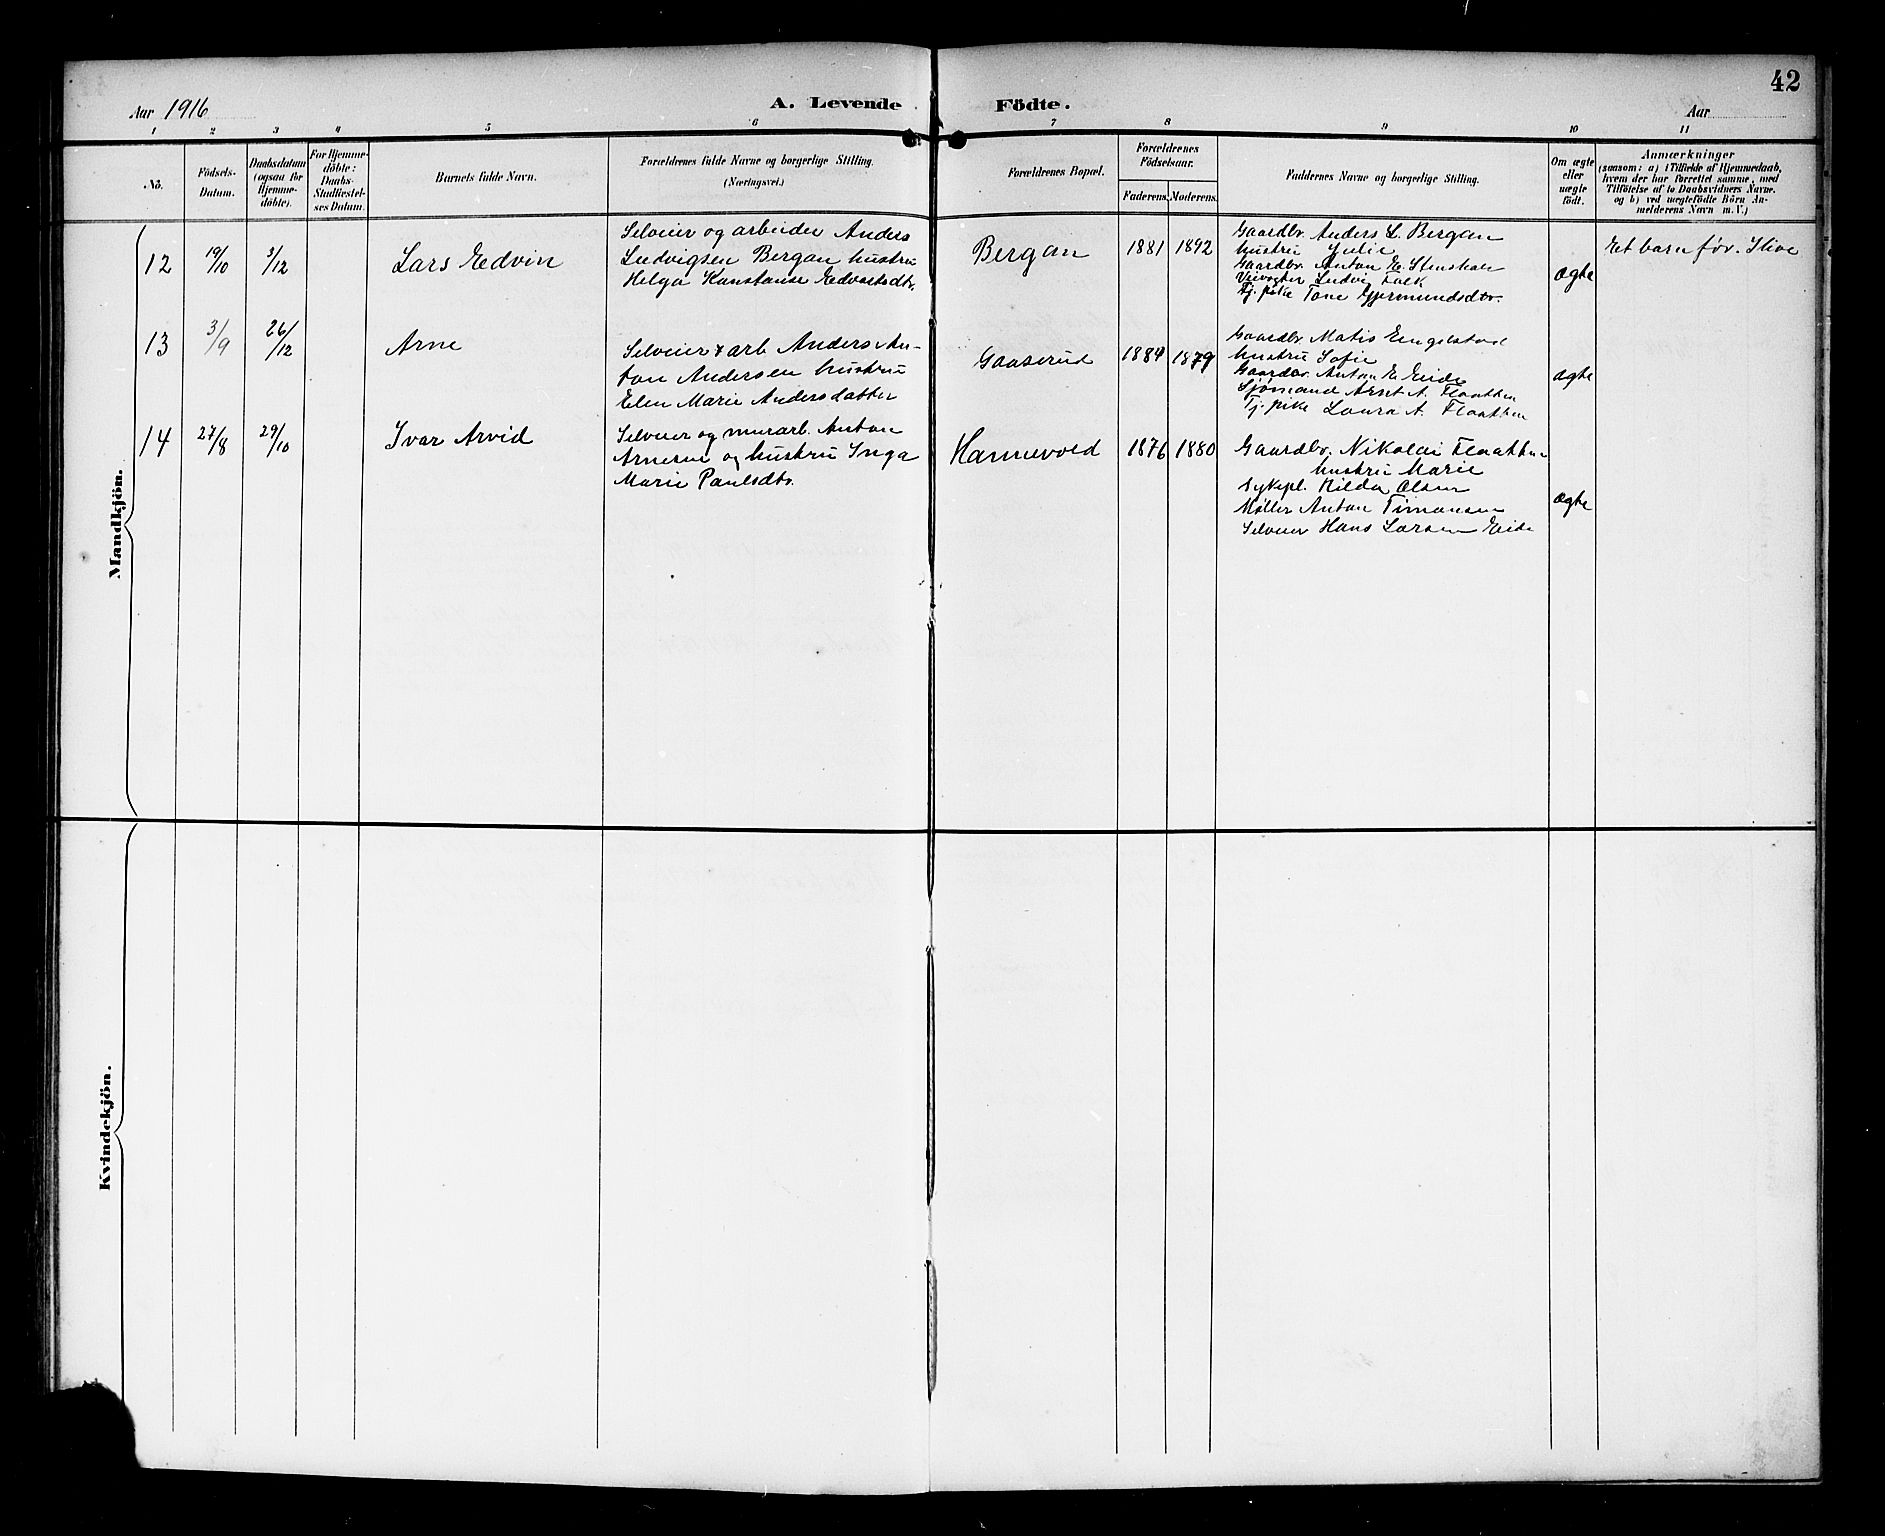 42
Aar 1916
A. Levende Födte.
Aar
1 2 3 4 5 6 7 8 9 10 11
No.
Födsels-
Datum.
Daabsdatum
(ogsaa for
Hjemme-
döbte).
For Hjemme-
döbte:
Daabs-
Stadfæstel-
ses Datum.
Barnets fulde Navn.
Forældrenes fulde Navne og borgerlige Stilling.
(Næringsvei.)
Forældrenes Bopæl.
Forældrenes
Födselsaar.
Faderens. Moderens.
Faddernes Navne og borgerlige Stilling.
Om ægte
eller
uægte
födt.
Anmærkninger
(saasom: a) i Tilfælde af Hjemmedaab,
hvem der har forrettet samme, med
Tilföielse af to Daabsvidners Navne.
og b) ved uægtefödte Börn An-
melderens Navn m. V.)
Mandkjön.
12
19/10
3/12
Lars Edvin
Selveier og arbeider Anders
Ludvigsen Bergan hustru
Helga Konstanse Edvartsdtr.
Bergan
1881
1892
Gaardbr. Anders L. Bergan
hustru Julie
Gaardbr. Anton E. Stenshole
Veivogter Ludvig Falk
Tj. pike Tone Gjermundsdtr.
ægte
Et barn før. Ilive
13
3/9
26/12
Arne
Selveier & arb Anders An-
ton Andersen hustru
Elen Marie Andersdatter
Gaaserud
1884
1879
Gaardbr. Matis Engelstad
hustru Sofie
Gaardbr. Anton E. Eide
Sjømand Arnt A. Flaatten
Tj. pike Laura A. Flaatten
ægte
14
27/8
29/10
Ivar Arvid
Selveier og murarb. Anton
Arnesen og hustru Inga
Marie Paulsdtr.
Hannevold
1876
1880
Gaardbr. Nikolai Flaatten
hustru Marie
Sykepl. Hilda Olsen
Møller Anton Timansen
Selveier Hans Larsen Eide
ægte
Kvindekjön.